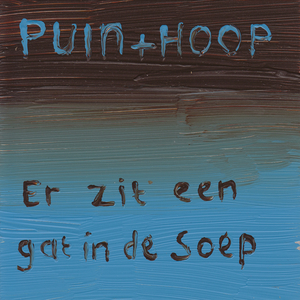 PUIn+HOOP
Er zit een
gat in de Soep